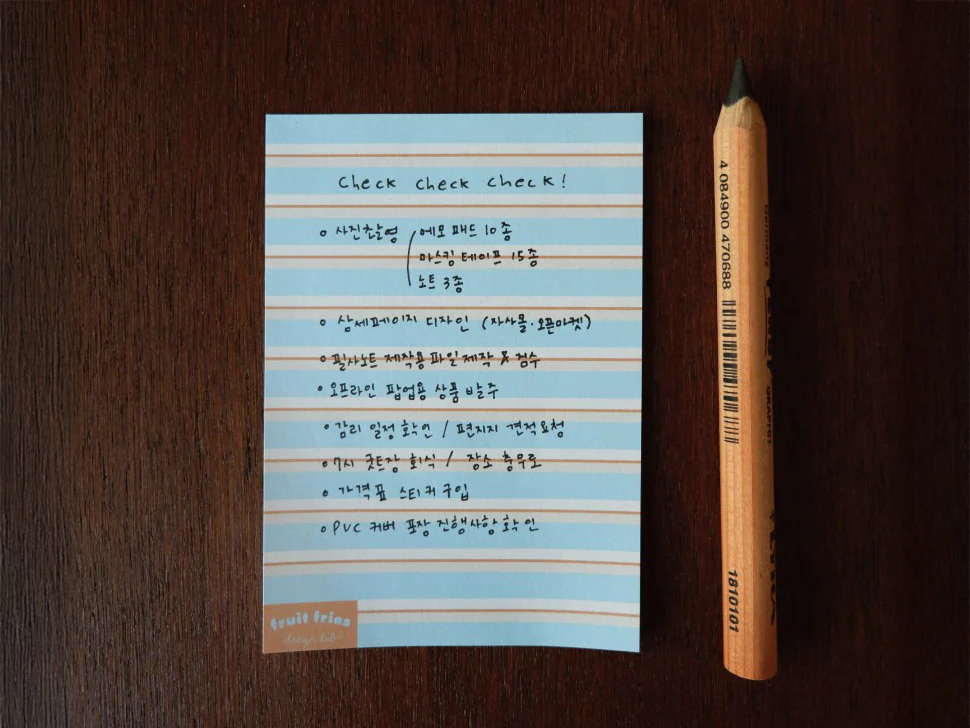 Check Check Check!
• 사진촬영 ( 메모 패드 10종
마스킹 테이프 15종
노트 3종
• 상세페이지 디자인 (자사몰·오픈마켓)
• 필사노트 제작용 파일 제작 & 검수
• 오프라인 팝업용 상품 발주
• 감리 일정 확인 / 편지지 견적요청
• 7시 굿트장 회식 / 장소 충무로
• 가격표 스티커 구입
• PVC 커버 포장 진행사항 확인
fruit fries
design lab
4 084900 470688
Germany
GRAPHIT
1810101